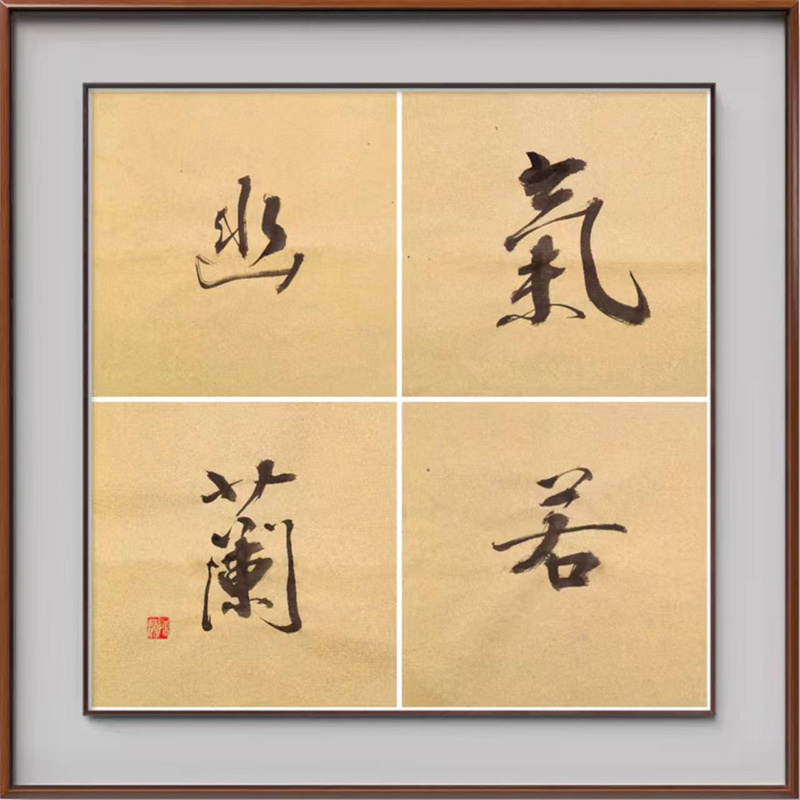 氣若
幽蘭